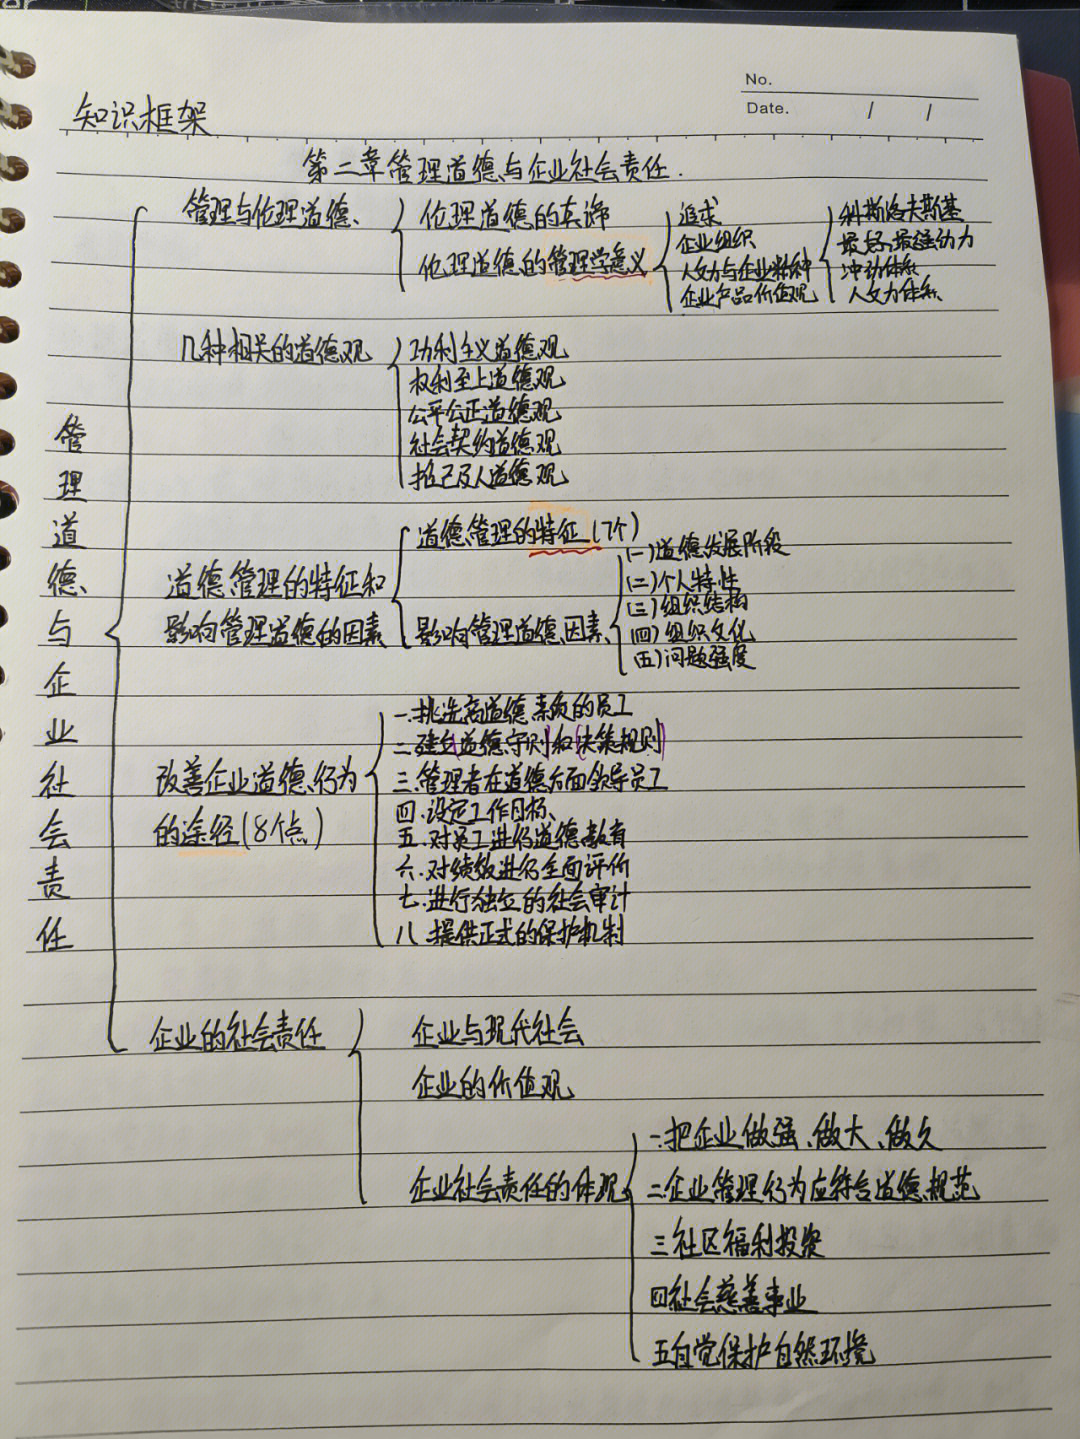 No.
Date. / /
知识框架
第二章管理道德与企业社会责任.
管理道德与企业社会责任
管理与伦理道德
伦理道德的本
伦理道德的管理学意义
追求
企业组织
人文力与企业精神
企业产品价值观
科斯洛夫斯基
最好、最强动力
冲动体系
人文力体系
几种相关的道德观
功利主义道德观
权利至上道德观
公平公正道德观
社会契约道德观
推己及人道德观
道德管理的特征和
影响管理道德的因素
道德管理的特征(7个)
影响管理道德因素
(一)道德发展阶段
(二)个人特性
(三)组织结构
(四)组织文化
(五)问题强度
改善企业道德行为
的途径(8个点)
一.挑选高道德素质的员工
二.建立道德守则和决策规则
三.管理者在道德方面领导员工
四.设定工作目标
五.对员工进行道德教育
六.对绩效进行全面评价
七.进行独立的社会审计
八.提供正式的保护机制
企业的社会责任
企业与现代社会
企业的价值观
企业社会责任的体现
一.把企业做强、做大、做久
二.企业管理行为应符合道德规范
三社区福利投资
四社会慈善事业
五自觉保护自然环境